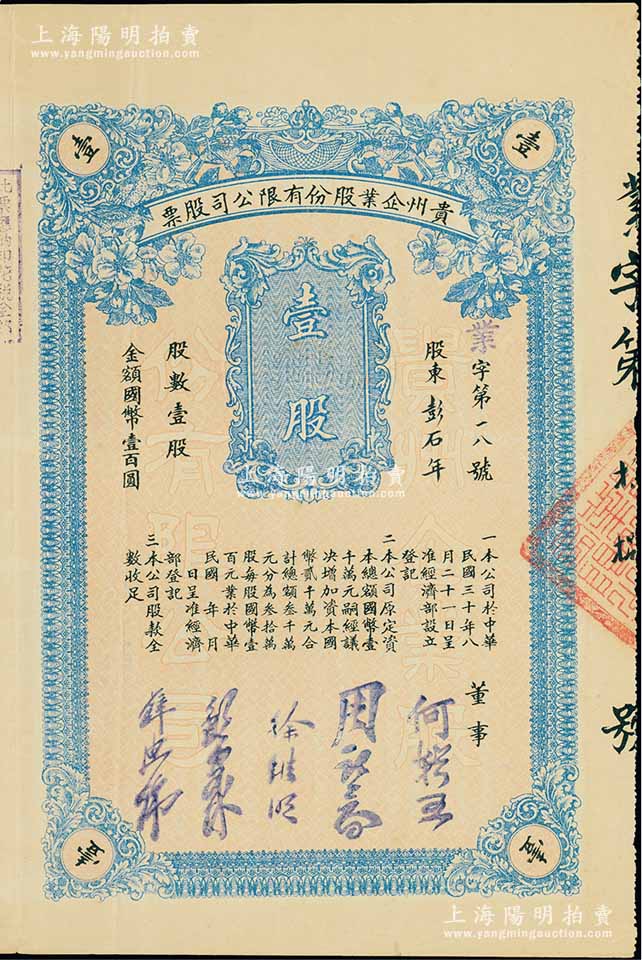 上海陽明拍賣
www.yangmingauction.com
上海陽明拍賣
www.yangmingauction.com
壹
壹
貴州企業股份有限公司股票
業字第
號
業字第一八號
股東 彭石年
壹股
股數壹股
金額國幣壹百圓
貴州企業股
份有限公司
一本公司於中華
民國三十年八
月二十一日呈
准經濟部設立
登記
二本公司原定資
本總額國幣壹
千萬元嗣經議
決增加資本國
幣貳千萬元合
計總額叁千萬
元分為叁拾萬
股每股國幣壹
百元業於中華
民國 年 月
日呈准經濟
部登記
三本公司股款全
數收足
董事
何輯五
徐維明
上海陽明拍賣
www.yangmingauction.com
壹
壹
上海陽明拍賣
www.yangmingauction.com